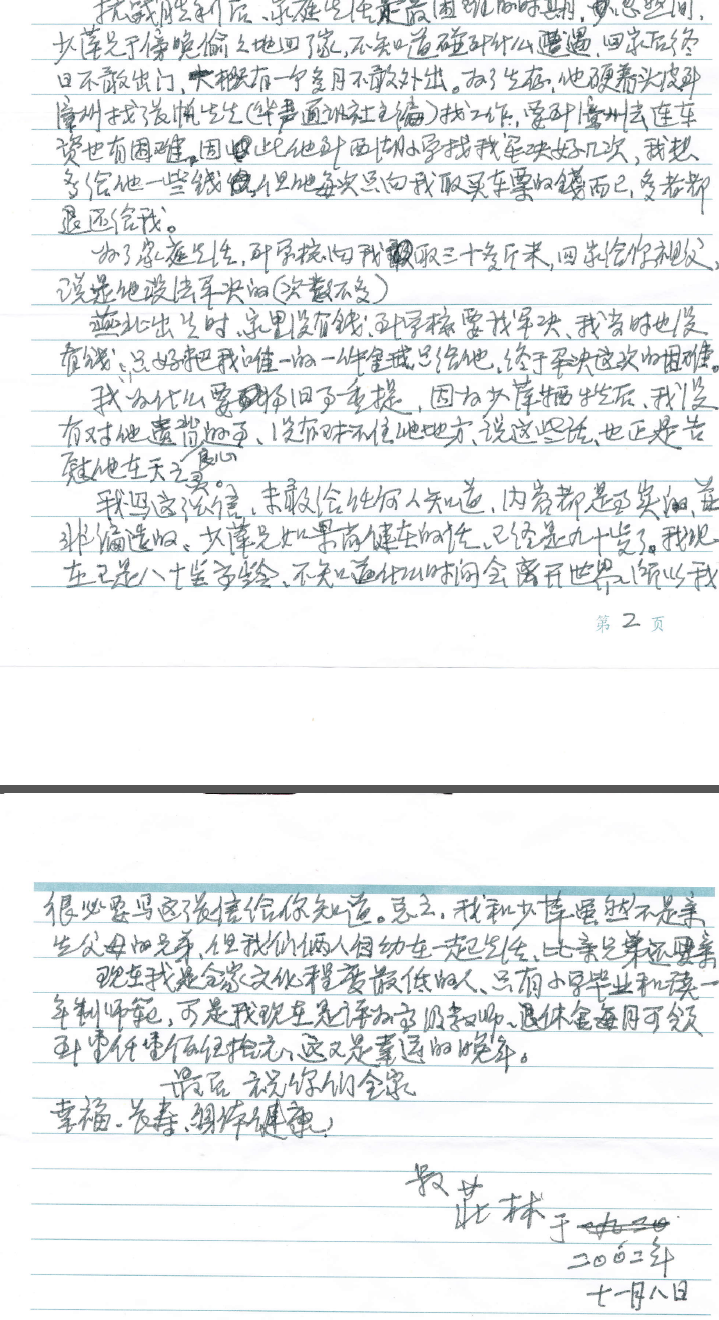 抗战胜利后、家庭生活是最困难的时期,忽然间,
少萍兄于傍晚偷之地回了家,不知道碰到什么遭遇,回家后终
日不敢出门,大概有一个多月不敢外出。为了生存,他硬着头皮到
漳州找张帆先生(华声通讯社主编)找工作,要到漳州去连车
资也有困难,因此他到西湖小学找我解决好几次,我想
多给他一些钱,但他每次只向我取买车票的钱而已,多者都
退还给我。
为了家庭生活,到学校向我取三十多斤米,回家给你祖父,
说是他设法解决的(次数不多)
燕北出生时、家里没有钱、到学校要找解决、我当时也没
有钱、只好把我唯一的一件金戒只给他,终于解决这次的困难。
我为什么要将旧事重提,因为少萍牺牲后、我没
有对他遗背的事、没有对不住他地方、说这些话、也正是告
良心
慰他在天之灵。
我写这张信,未敢给任何人知道,内容都是事实的,并
非编造的、少萍兄如果尚健在的话、已经是九十岁了。我现
在已是八十岁高龄、不知道什么时间会离开世界、所以我
第 2 页
很必要写这张信给你知道。总之,我和少萍虽然不是亲
生父母的兄弟,但我们俩人自幼在一起生活、比亲兄弟还要亲
现在我是全家文化程度最低的人、只有小学毕业和读一
年制师范,可是我现在是评为高级教师、退休金每月可领
到壹仟壹佰伍拾元、这又是幸运的晚年。
最后 祝你们全家
幸福、长寿、身体健康!
叔 茈林 于
二00二年
十一月八日